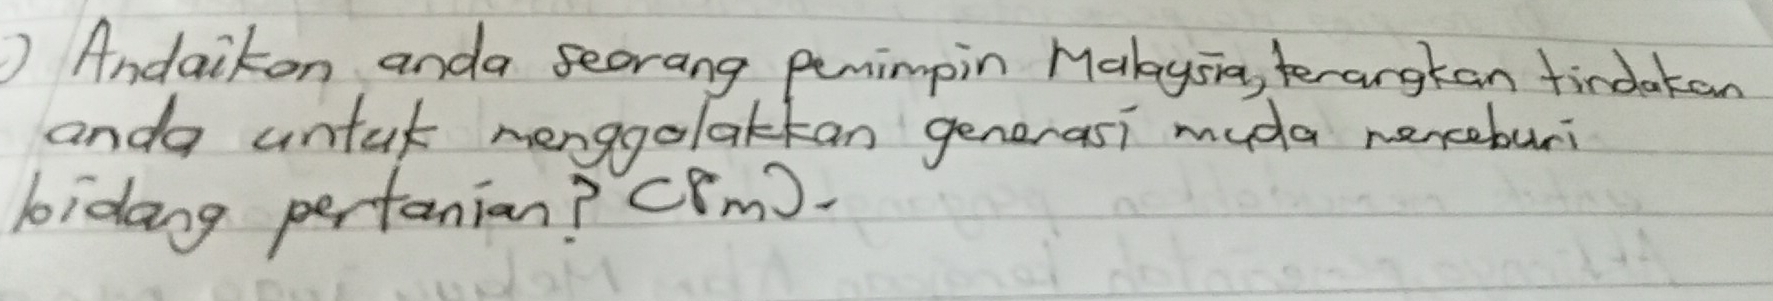 ) Andaikan anda seorang pemimpin Malaysia, terangkan tindakan
anda untuk menggalakkan generasi muda menceburi
bidang pertanian? (8m).